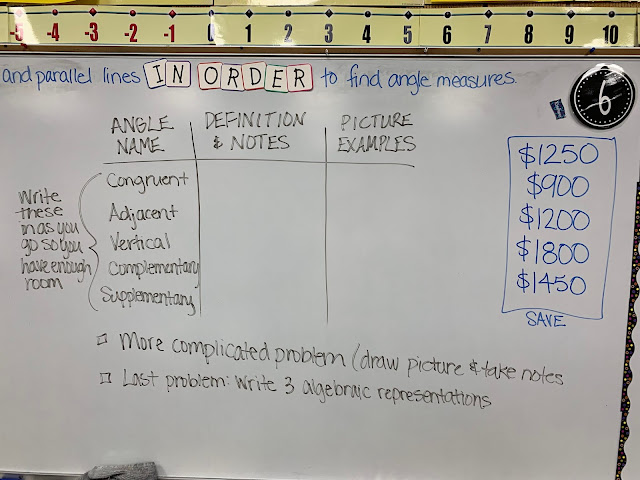 -5 -4 -3 -2 -1 0 1 2 3 4 5 6 7 8 9 10
and parallel lines IN ORDER to find angle measures.
6
ANGLE NAME
DEFINITION & NOTES
PICTURE EXAMPLES
Write
these
in as you
go so you
have enough
room
Congruent
Adjacent
Vertical
Complementary
Supplementary
$1250
$900
$1200
$1800
$1450
SAVE
More complicated problem (draw picture & take notes
Last problem: Write 3 algebraic representations